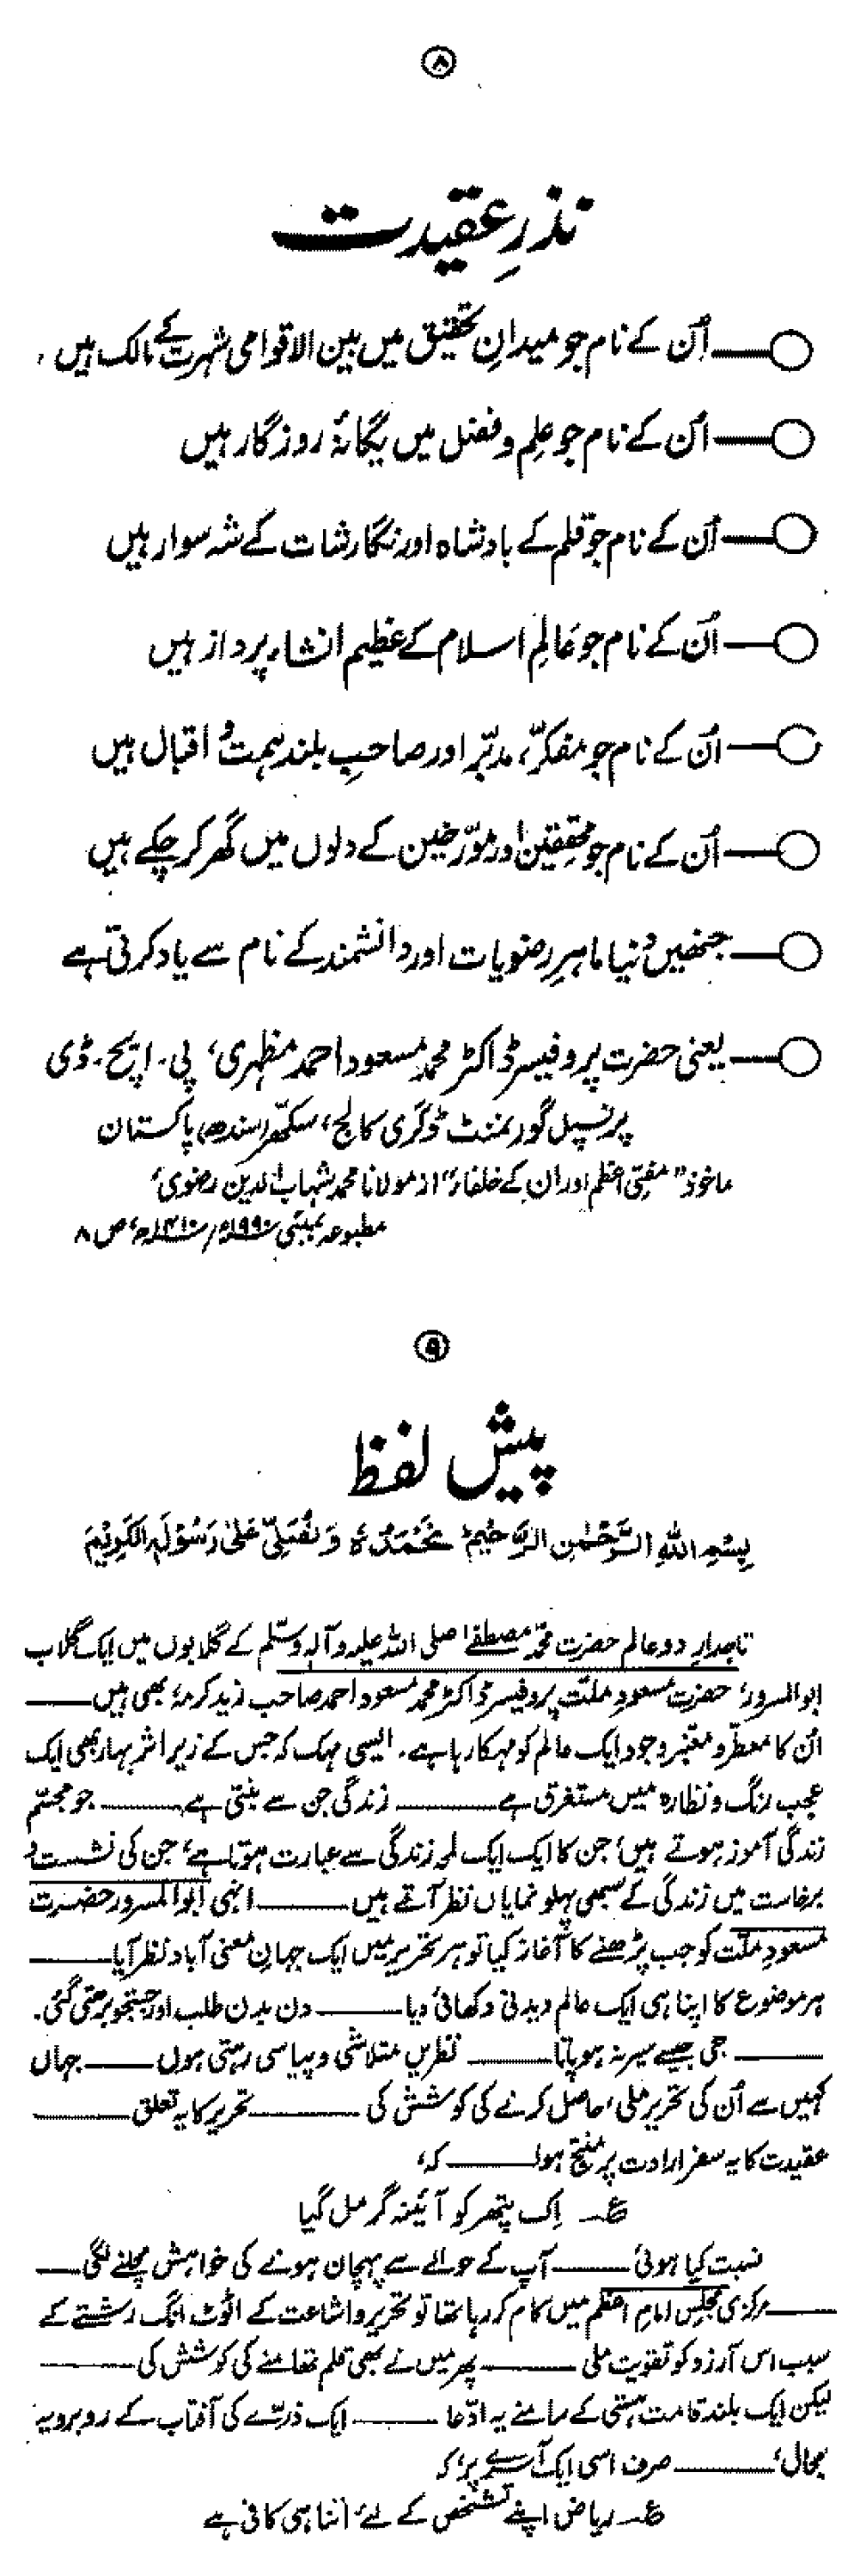 ۸
نذرِ عقیدت
اُن کے نام جو میدانِ تحقیق میں بین الاقوامی شہرت کے مالک ہیں،
اُن کے نام جو علم و فضل میں یگانۂ روزگار ہیں
اُن کے نام جو قلم کے بادشاہ اور نگارشات کے شہ سوار ہیں
اُن کے نام جو عالمِ اسلام کے عظیم انشاء پرداز ہیں
اُن کے نام جو مفکّر، مدبّر اور صاحبِ بلند ہمت و اقبال ہیں
اُن کے نام جو محققین اور مورّخین کے دلوں میں گھر کر چکے ہیں
جنھیں دنیا ماہرِ رضویات اور دانشمند کے نام سے یاد کرتی ہے
یعنی حضرت پروفیسر ڈاکٹر محمد مسعود احمد مظہری، پی۔ایچ۔ڈی
پرنسپل گورنمنٹ ڈگری کالج، سکھر (سندھ) پاکستان
ماخوذ "مفتی اعظم اور ان کے خلفاء" از مولانا محمد شہاب الدین رضوی،
مطبوعہ بمبئی ۱۹۹۰ء/۱۴۱۰ھ، ص ۸
۹
پیش لفظ
بِسْمِ اللهِ الرَّحْمٰنِ الرَّحِیْمِ نَحْمَدُہٗ وَ نُصَلِّیْ عَلٰی رَسُوْلِہِ الْکَرِیْمِ
تاجدارِ دو عالم حضرت محمّد مصطفےٰ صلی اللہ علیہ و آلہٖ وسلّم کے گلابوں میں ایک گلاب
ابوالمسرور، حضرت مسعودِ ملّت پروفیسر ڈاکٹر محمد مسعود احمد صاحب زید کرمہٗ بھی ہیں ——
اُن کا معطّر و معنبر وجود ایک عالم کو مہکا رہا ہے۔ ایسی مہک کہ جس کے زیر اثر بہار بھی ایک
عجب رنگ و نظارہ میں مستغرق ہے —— زندگی جن سے بنتی ہے —— جو مجسّم
زندگی آموز ہوتے ہیں، جن کا ایک ایک لمحہ زندگی سے عبارت ہوتا ہے، جن کی نشست و
برخاست میں زندگی کے سبھی پہلو نمایاں نظر آتے ہیں —— انہی ابوالمسرور حضرت
مسعودِ ملّت کو جب پڑھنے کا آغاز کیا تو ہر تحریر میں ایک جہانِ معنی آباد نظر آیا ——
ہر موضوع کا اپنا ہی ایک عالم دیدنی دکھائی دیا —— دن بدن طلب اور جستجو بڑھتی گئی۔
—— جی جیسے سیر نہ ہو پاتا —— نظریں متلاشی و پیاسی رہتی ہوں —— جہاں
کہیں سے اُن کی تحریر ملی، حاصل کرنے کی کوشش کی —— تحریر کا یہ تعلق ——
عقیدت کا یہ سفر ارادت پر منتج ہوا —— کہ،
ع۔ اِک پتھر کو آئینہ گر مل گیا
نسبت کیا ہوئی —— آپ کے حوالے سے پہچان ہونے کی خواہش مچلنے لگی ——
—— مرکزی مجلس امامِ اعظم میں کام کر رہا تھا تو تحریر و اشاعت کے اٹوٹ انگ رشتے کے
سبب اس آرزو کو تقویت ملی —— پھر میں نے بھی قلم تھامنے کی کوشش کی ——
لیکن ایک بلند قامت ہستی کے سامنے یہ ادّعا —— ایک ذرّے کی آفتاب کے روبرو یہ
مجال، —— صرف اسی ایک آسرے پر، کہ
ع۔ ریاض اپنے تشخص کے لئے اتنا ہی کافی ہے